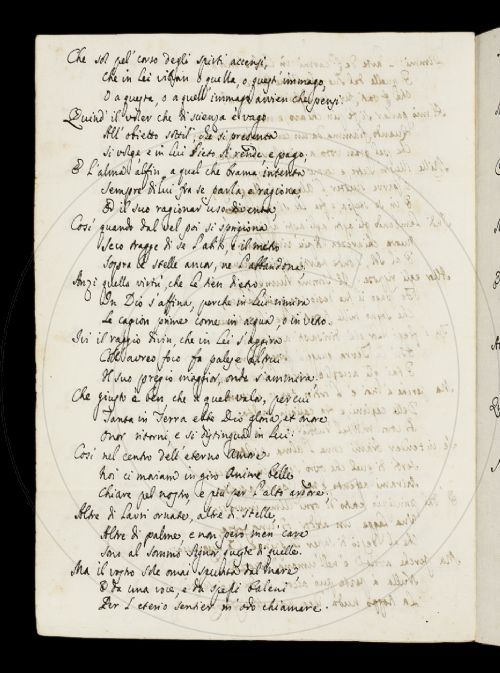 Che sol pel' corso degli spirti accensi,
Che in lei vibran o quella, o quest' immago,
O a questa, o a quell' immago avvien che pensi.
Quind' il voler che di scienza è vago
All' obietto sottil, che si presenta
Si volge e in lui lieto si rende, e pago,
E l'alma alfin, a quel che brama, intenta
Sempre di lui fra se parla, e ragiona,
Ed il suo ragionar uso diventa,
Così quando dal vel poi si sprigiona
Seco tragge di se l'abito, e il metro
Sopra le stelle ancor, ne l'abbandona.
Anzi quella virtù, che le tien dietro
In Dio s'affina, perche in lui rimira
Le cagion prime come in acqua, o in vetro.
Ivi il raggio divin, che in lei s'aggira
Col aureo foco fa palese altrui
Il suo pregio maggior, onde s'ammira.
Che giusto è ben che a quel velo, per cui
Tanta in Terra ebbe Dio gloria, et onore
Onor ritorni, e si distingua in lui.
Così nel centro dell' eterno Amore
Noi ci moviamo in giro Anime belle
Chiare pel nostro, e più per l'altrui ardore.
Altre di lauri ornate, altre di stelle,
Altre di palme, e non però men care
Sono al sommo Signor queste di quelle.
Ma il vostro sole omai
E da una voce, e da
Per l'eterio sentier in' odo chiamare.